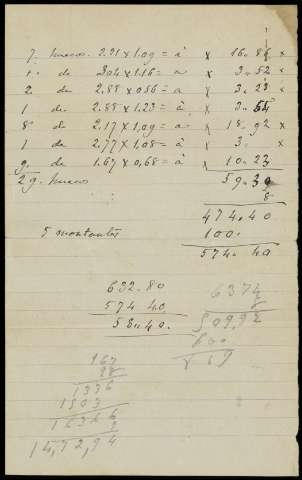 7. huecos. 2.21 x 1.09 = à x 16.86 x
1. de 3.04 x 1.16 = a x 3.52 x
2. de 2.88 x 0.56 = a x 3.23 x
1 de 2.88 x 1.23 = a x 3.54
8 de 2.17 x 1.09 = a x 18.92 x
1 de 2.77 x 1.08 = a x 3. x
9. de 1.67 x 0,68 = à x 10.23
29. huecos 59.30
8
474.40
5 montantes 100.
574.40
632.80
574 40
58.40.
6374
8
509,92
600
167
98
1336
1503
16366
9